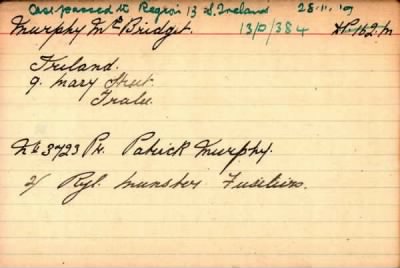 Case passed to Region 13 S. Ireland 28.11.19
Murphy Mrs Bridget. 13/D/384
Ireland.
9. Mary Street.
Tralee.
No 3723 Pte. Patrick Murphy.
2/ Ryl. Munster Fusiliers.